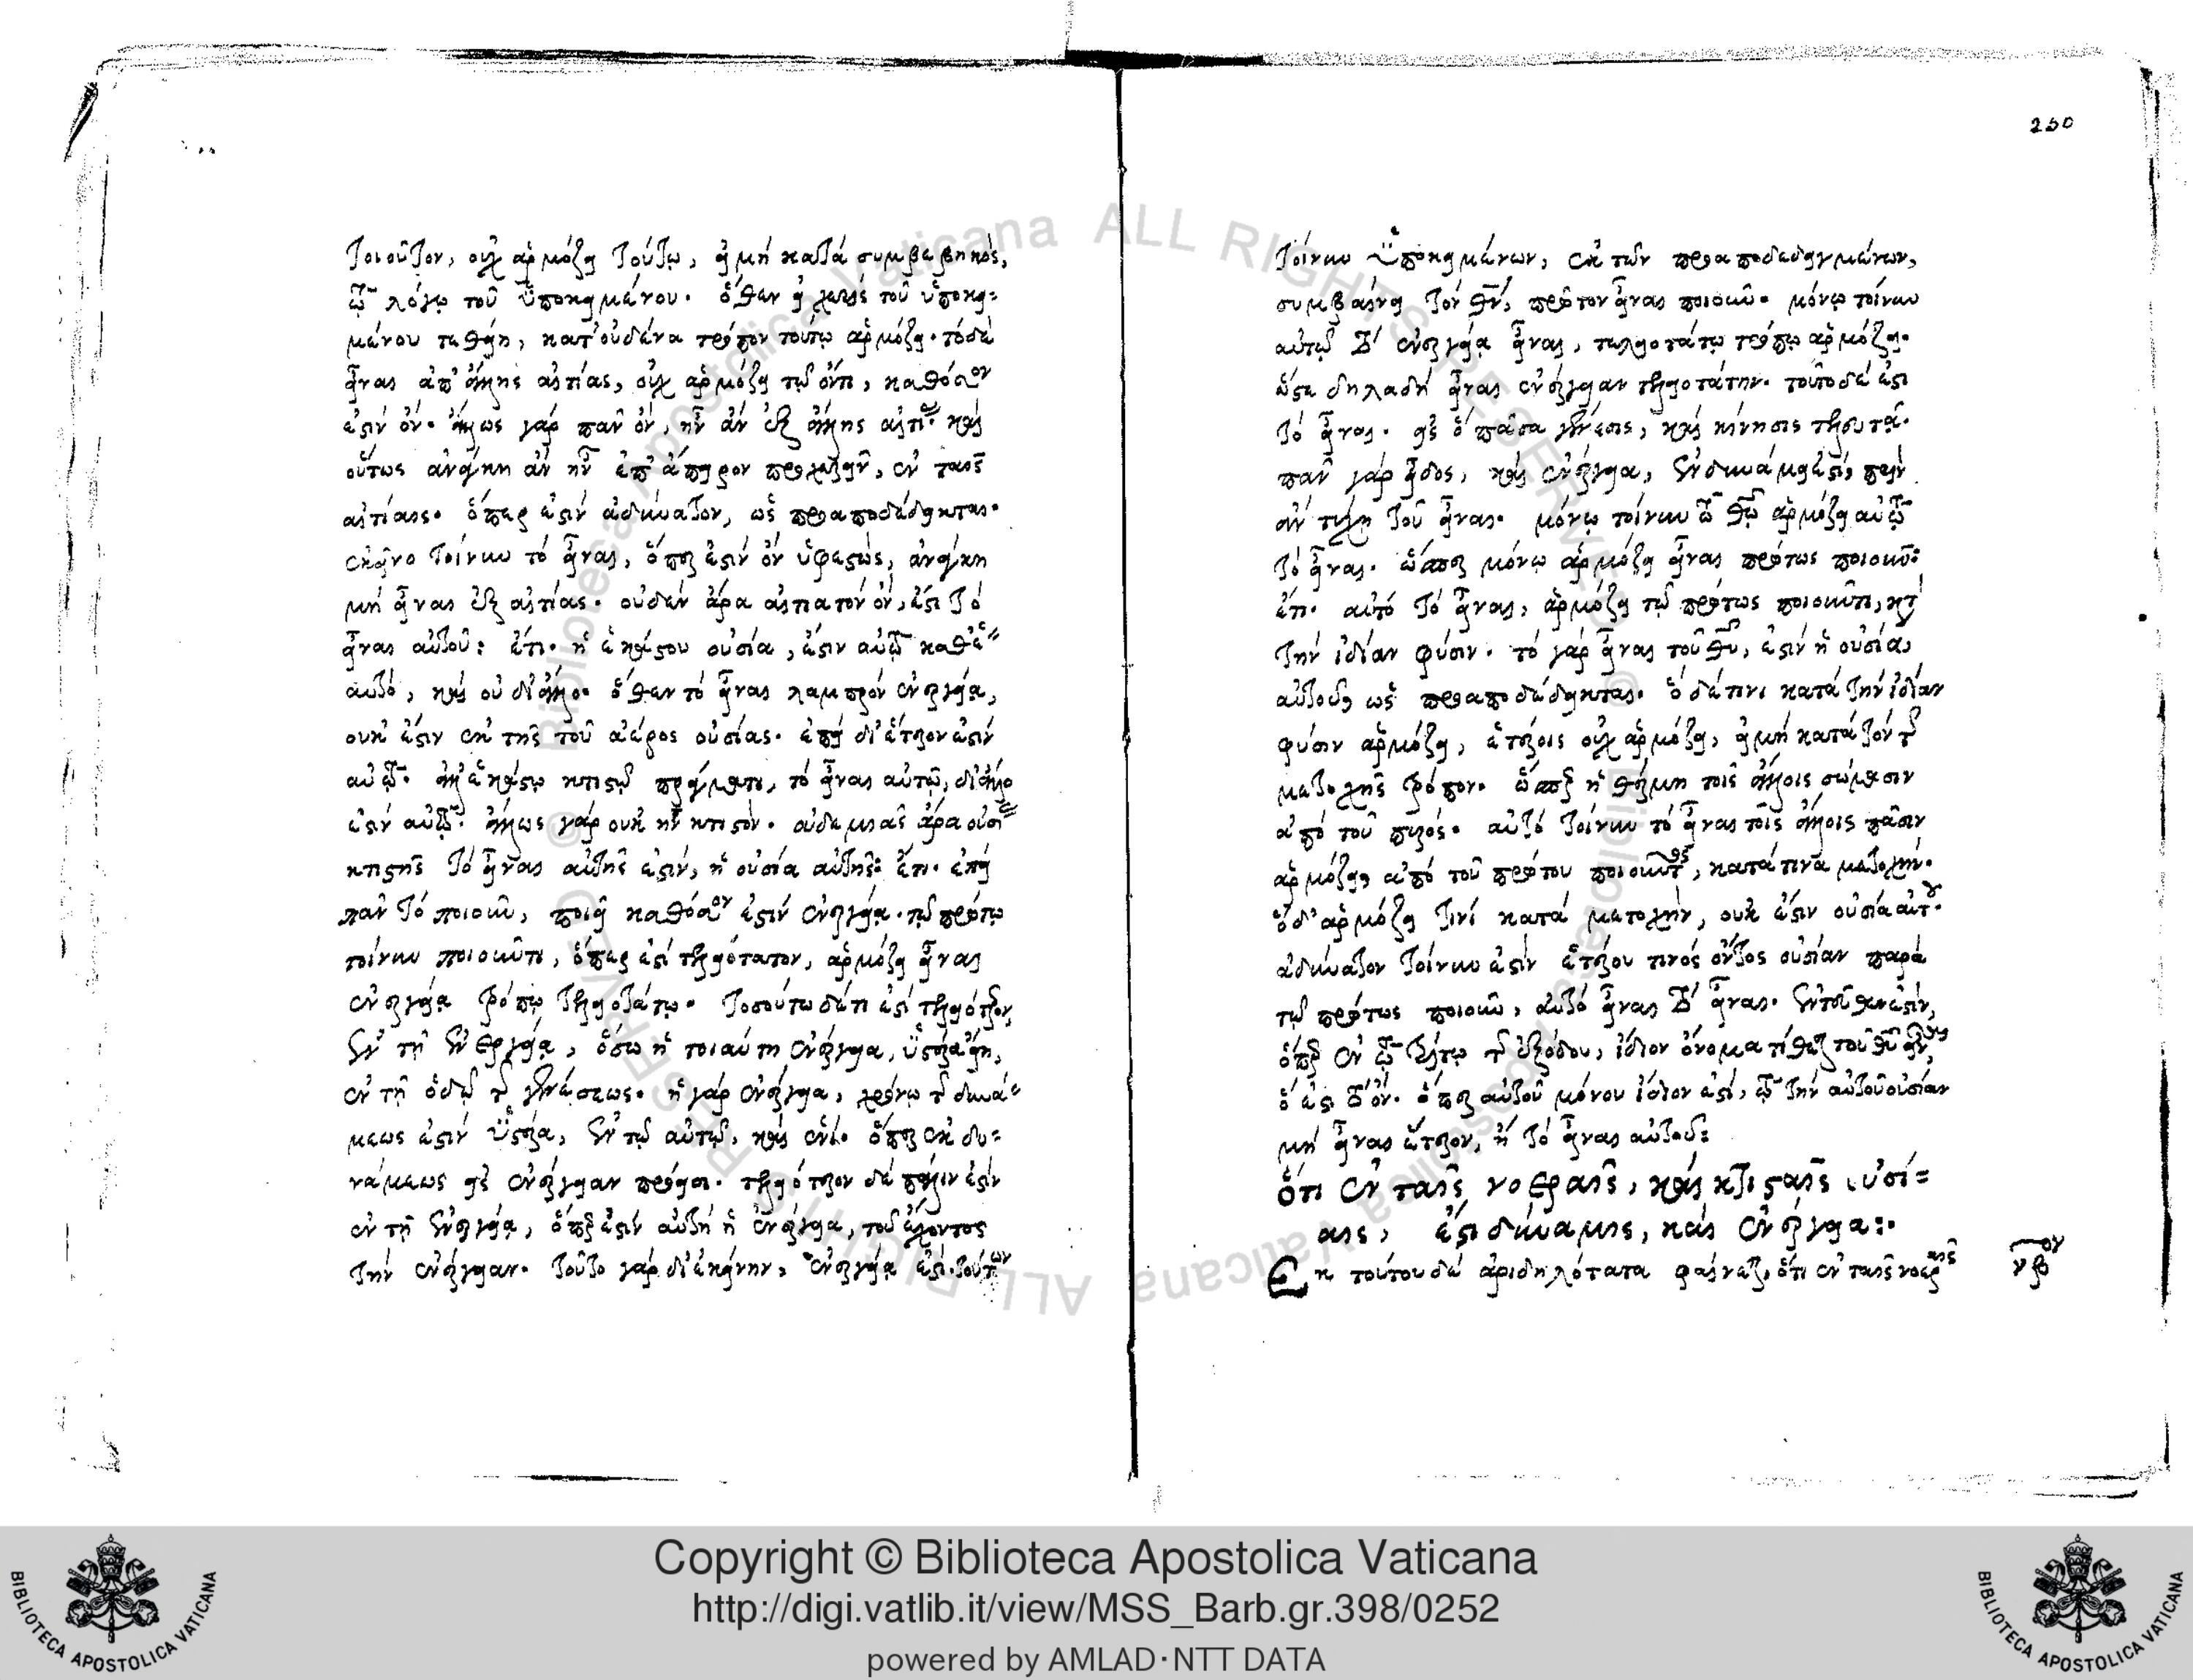 τοιοῦτον, οὐχ ἁρμόζει τούτῳ, εἰ μή κατά συμβεβηκός,
τῷ λόγῳ τοῦ ὑποκειμένου. ὅθεν εἰ χωρίς τοῦ ὑποκει=
μένου τεθείη, κατ' οὐδένα τρόπον τούτῳ ἁρμόζει. τό δέ
εἶναι ἀπ' ἄλλης αἰτίας, οὐχ ἁρμόζει τῷ ὄντι, καθόσον
ἐστίν ὄν. ἄλλως γάρ πᾶν ὄν, ἦν ἄν ἐξ ἄλλης αἰτίας. καί
οὕτως ἀνάγκη ἄν ἦν ἐπ' ἄπειρον προχωρεῖν, ἐν ταῖς
αἰτίαις. ὅπερ ἐστίν ἀδύνατον, ὡς προαποδέδεικται.
ἐκεῖνο τοίνυν τό εἶναι, ὅπερ ἐστίν ὄν ὑφεστώς, ἀνάγκη
μή εἶναι ἐξ αἰτίας. οὐδέν ἄρα αἰτιατόν ὄν, ἐστί τό
εἶναι αὐτοῦ: ἔτι. ἡ ἑκάστου οὐσία, ἐστίν αὐτῷ καθ' ἑ=
αυτό, καί οὐ δι' ἄλλο. ὅθεν τό εἶναι λαμπρόν ἐνεργείᾳ,
οὐκ ἔστιν ἐκ τῆς τοῦ ἀέρος οὐσίας. ἐπεί δι' ἕτερον ἐστίν
αὐτῷ. ἀλλ' ἑκάστῳ κτιστῷ πράγματι, τό εἶναι αὐτῷ, δι' ἄλλο
ἐστίν αὐτῷ. ἄλλως γάρ οὐκ ἦν κτιστόν. οὐδεμιᾶς ἄρα οὐσίας
κτιστῆς τό εἶναι αὐτῆς ἐστίν, ἡ οὐσία αὐτῆς: ἔτι. ἐπεί
πᾶν τό ποιοῦν, ποιεῖ καθόσον ἐστίν ἐνεργείᾳ. τῷ πρώτῳ
τοίνυν ποιοῦντι, ὅπερ ἐστί τελειότατον, ἁρμόζει εἶναι
ἐνεργείᾳ τρόπῳ τελειοτάτῳ. τοσούτῳ δέ τι ἐστί τελειότερον
ἐν τῇ ἐνεργείᾳ, ὅσῳ ἡ τοιαύτη ἐνέργεια, ὑστέρα εἴη,
ἐν τῇ ὁδῷ τῆς γενέσεως. ἡ γάρ ἐνέργεια, χρόνῳ τῆς δυνά=
μεως ἐστίν ὑστέρα, ἐν τῷ αὐτῷ, καί ἑνί. ὅπερ ἐκ δυ=
νάμεως εἰς ἐνέργειαν πρόεισι. τελειότερον δέ πάλιν ἐστίν
ἐν τῇ ἐνεργείᾳ, ὅπερ ἐστίν αὐτή ἡ ἐνέργεια, τοῦ ἔχοντος
τήν ἐνέργειαν. τοῦτο γάρ δι' ἐκείνην, ἐνεργείᾳ ἐστί. τούτων
250
τοίνυν ὑποκειμένων, ἐκ τῶν προαποδεδειγμένων,
συμβαίνει τόν θν, πρῶτον εἶναι ποιοῦν. μόνῳ τοίνυν
αὐτῷ τό ἐνεργείᾳ εἶναι, τελειοτάτῳ τρόπῳ ἁρμόζει.
ὥστε δηλαδή εἶναι ἐνέργειαν τελειοτάτην. τοῦτο δέ ἐστι
τό εἶναι. εἰς ὅ πᾶσα γένεσις, καί κίνησις τελευτᾷ.
πᾶν γάρ εἶδος, καί ἐνέργεια, ἐν δυνάμει ἐστί, πρίν
ἄν τύχῃ τοῦ εἶναι. μόνῳ τοίνυν τῷ θῷ ἁρμόζει αὐτῷ
τό εἶναι. ὥσπερ μόνῳ ἁρμόζει εἶναι πρώτως ποιοῦν:
ἔτι. αὐτό τό εἶναι, ἁρμόζει τῷ πρώτως ποιοῦντι, κατά
τήν ἰδίαν φύσιν. τό γάρ εἶναι τοῦ θυ, ἐστίν ἡ οὐσία
αὐτοῦ, ὡς προαποδέδεικται. ὅ δέ τινι κατά τήν ἰδίαν
φύσιν ἁρμόζει, ἑτέροις οὐχ ἁρμόζει, εἰ μή κατά τόν τῆς
μετοχῆς τρόπον. ὥσπερ ἡ θέρμη τοῖς ἄλλοις σώμασιν
ἀπό τοῦ πυρός. αὐτό τοίνυν τό εἶναι τοῖς ἄλλοις πᾶσιν
ἁρμόζει, ἀπό τοῦ πρώτου ποιοῦντος, κατά τινα μετοχήν.
ὅ δ' ἁρμόζει τινί κατά μετοχήν, οὐκ ἔστιν οὐσία αὐτοῦ.
ἀδύνατον τοίνυν ἐστίν ἑτέρου τινός ὄντος οὐσίαν παρά
τῷ πρώτως ποιοῦν, αὐτό εἶναι τό εἶναι. ἐντεῦθεν ἐστίν,
ὅπερ ἐν τῷ τρίτῳ τῆς ἐξόδου, ἴδιον ὄνομα τίθεται τοῦ θυ εἶναι,
ὅ ἐστι τό ὄν. ὅπερ αὐτοῦ μόνου ἴδιον ἐστί, τῷ τήν αὐτοῦ οὐσίαν
μή εἶναι ἕτερον, ἤ τό εἶναι αὐτοῦ:
ὅτι ἐν ταῖς νοεραῖς, καί κτισταῖς οὐσί=
αις, ἐστί δύναμις, καί ἐνέργεια:.
Ἐκ τούτου δέ ἀριδηλότατα φαίνεται, ὅτι ἐν ταῖς νοεραῖς
νβον
Copyright © Biblioteca Apostolica Vaticana
http://digi.vatlib.it/view/MSS_Barb.gr.398/0252
powered by AMLAD·NTT DATA
BIBLIOTECA APOSTOLICA VATICANA
BIBLIOTECA APOSTOLICA VATICANA